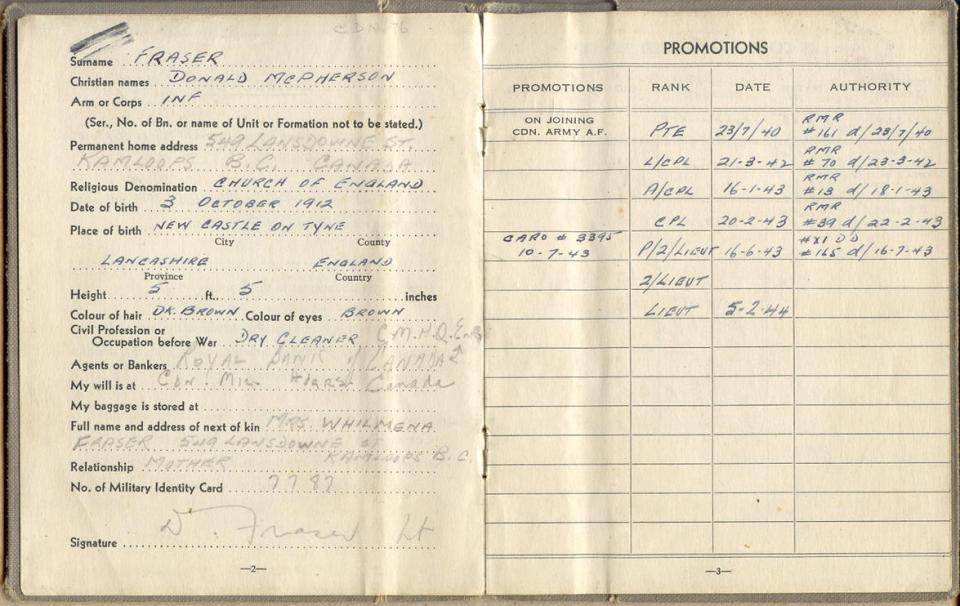 CDN. 76
Surname FRASER
Christian names DONALD McPHERSON
Arm or Corps INF
(Ser., No. of Bn. or name of Unit or Formation not to be stated.)
Permanent home address 549 LANSDOWNE ST.
KAMLOOPS B.C. CANADA
Religious Denomination CHURCH OF ENGLAND
Date of birth 3 OCTOBER 1912
Place of birth NEW CASTLE ON TYNE
City County
LANCASHIRE ENGLAND
Province Country
Height 5 ft. 5 inches
Colour of hair DK. BROWN Colour of eyes BROWN
Civil Profession or
Occupation before War DRY CLEANER C.M.H.Q. Eng
Agents or Bankers ROYAL BANK of CANADA
My will is at Cdn. Mil. Hdqrs. Canada
My baggage is stored at
Full name and address of next of kin MRS. WHILMENA
FRASER 549 LANSDOWNE ST
KAMLOOPS B.C.
Relationship MOTHER
No. of Military Identity Card 7787
D. Fraser Lt
Signature
—2—
PROMOTIONS
PROMOTIONS RANK DATE AUTHORITY
ON JOINING
CDN. ARMY A.F. PTE 23/7/40 RMR #161 d/23/7/40
L/CPL 21-3-42 RMR #70 d/23-3-42
A/CPL 16-1-43 RMR #13 d/18-1-43
CPL 20-2-43 RMR #39 d/22-2-43
CARO # 3395
10-7-43 P/2/LIEUT 16-6-43 #X1 DD #165 d/16-7-43
2/LIEUT
LIEUT 5-2-44
—3—